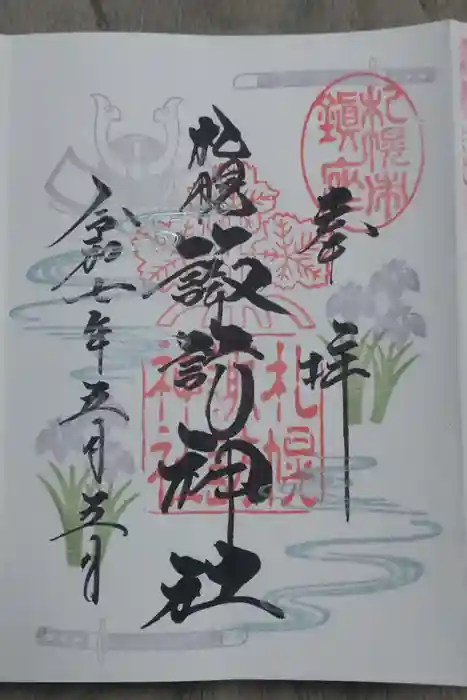 札幌市
鎮座
奉拝
札幌諏訪神社
札幌
諏訪
神社
令和七年五月五日